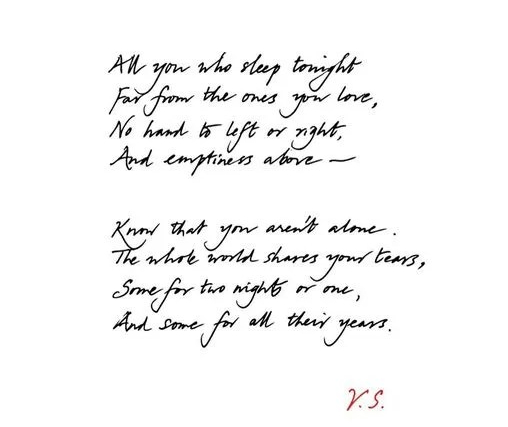 All you who sleep tonight
Far from the ones you love,
No hand to left or right,
And emptiness above —
Know that you aren't alone.
The whole world shares your tears,
Some for two nights or one,
And some for all their years.
V.S.